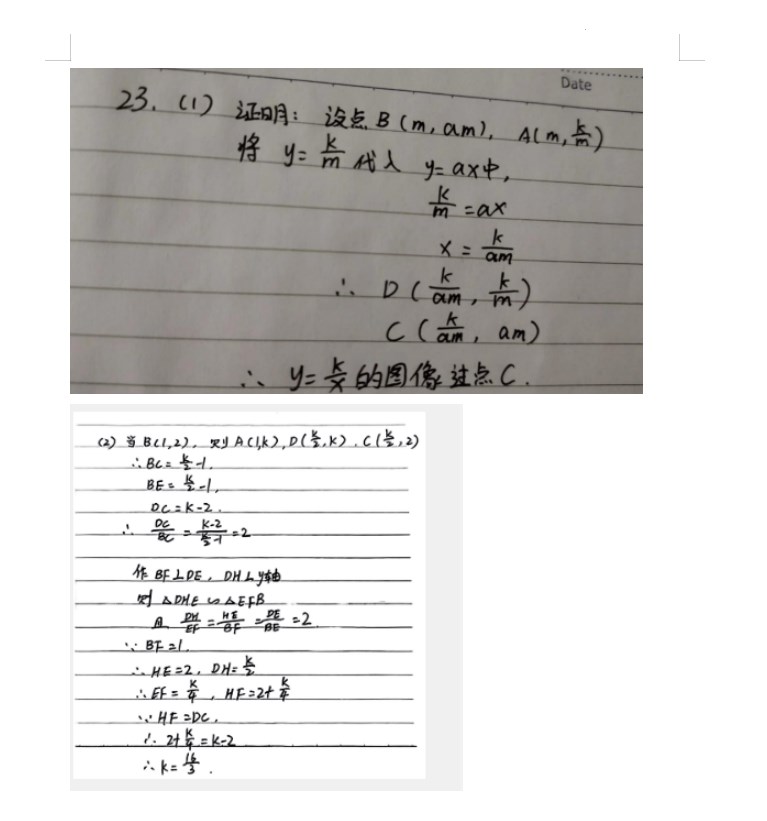 Date
23. (1) 证明: 设点 B (m, am), A(m, k/m)
将 y= k/m 代入 y=ax中,
k/m =ax
x = k/am
∴ D ( k/am , k/m )
C ( k/am , am)
∴ y= k/x 的图像过点 C.
(2) 当 B(1,2), 则 A(1,k), D(k/2,k). C(k/2,2)
∴BC= k/2 -1.
BE= k/2 -1.
DC=k-2.
∴ DC/BC = k-2 / k/2 -1 =2
作 BF⊥DE, DH⊥y轴
则 △DHE ∽ △EFB
且 DH/EF = HE/BF = DE/BE =2
∵ BF=1.
∴ HE=2, DH= k/2
∴ EF= k/4 , HF=2+ k/4
∵ HF=DC.
∴ 2+ k/4 =k-2
∴ k= 16/3 .